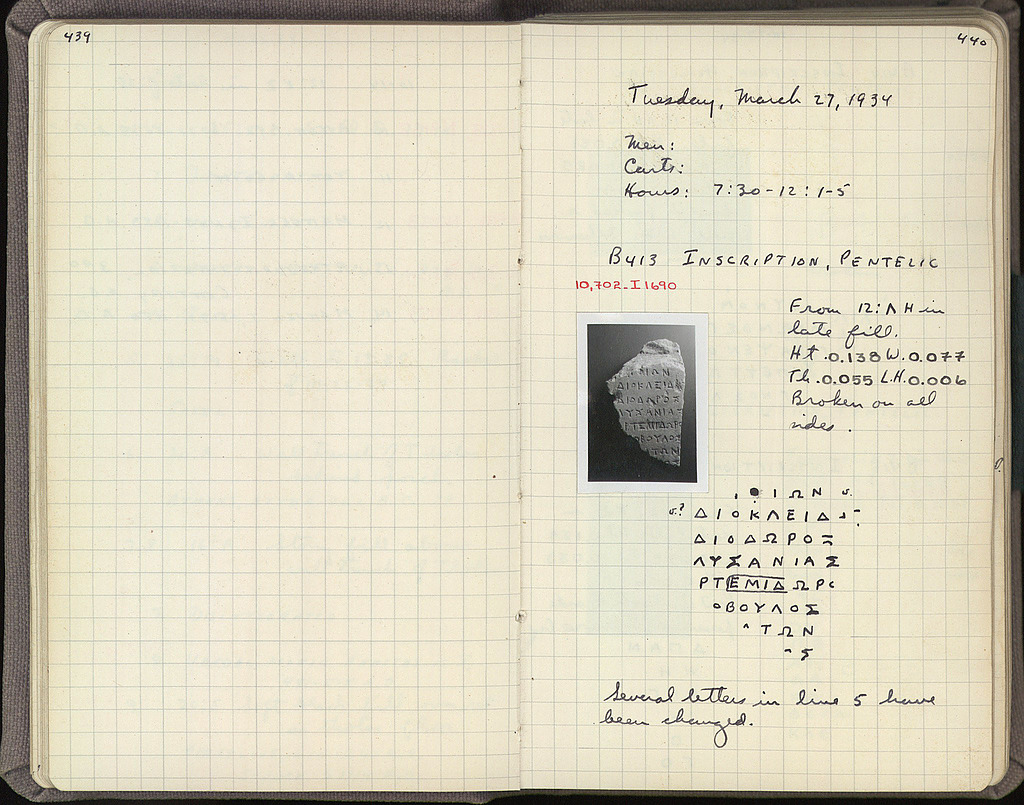 439
440
Tuesday, March 27, 1934
Men:
Carts:
Hours: 7:30-12 : 1-5
B413 INSCRIPTION, PENTELIC
10,702-I 1690
From 12:ΛH in
late fill.
Ht .0.138 W.0.077
Th.0.055 L.H.0.006
Broken on all
sides.
ΙΩΝ
ΔΙΟΚΛΕΙΔ
ΔΙΟΔΩΡΟΣ
ΛΥΣΑΝΙΑΣ
ΡΤΕΜΙΔΩΡΟ
ΟΒΟΥΛΟΣ
ΤΩΝ
Several letters in line 5 have
been changed.